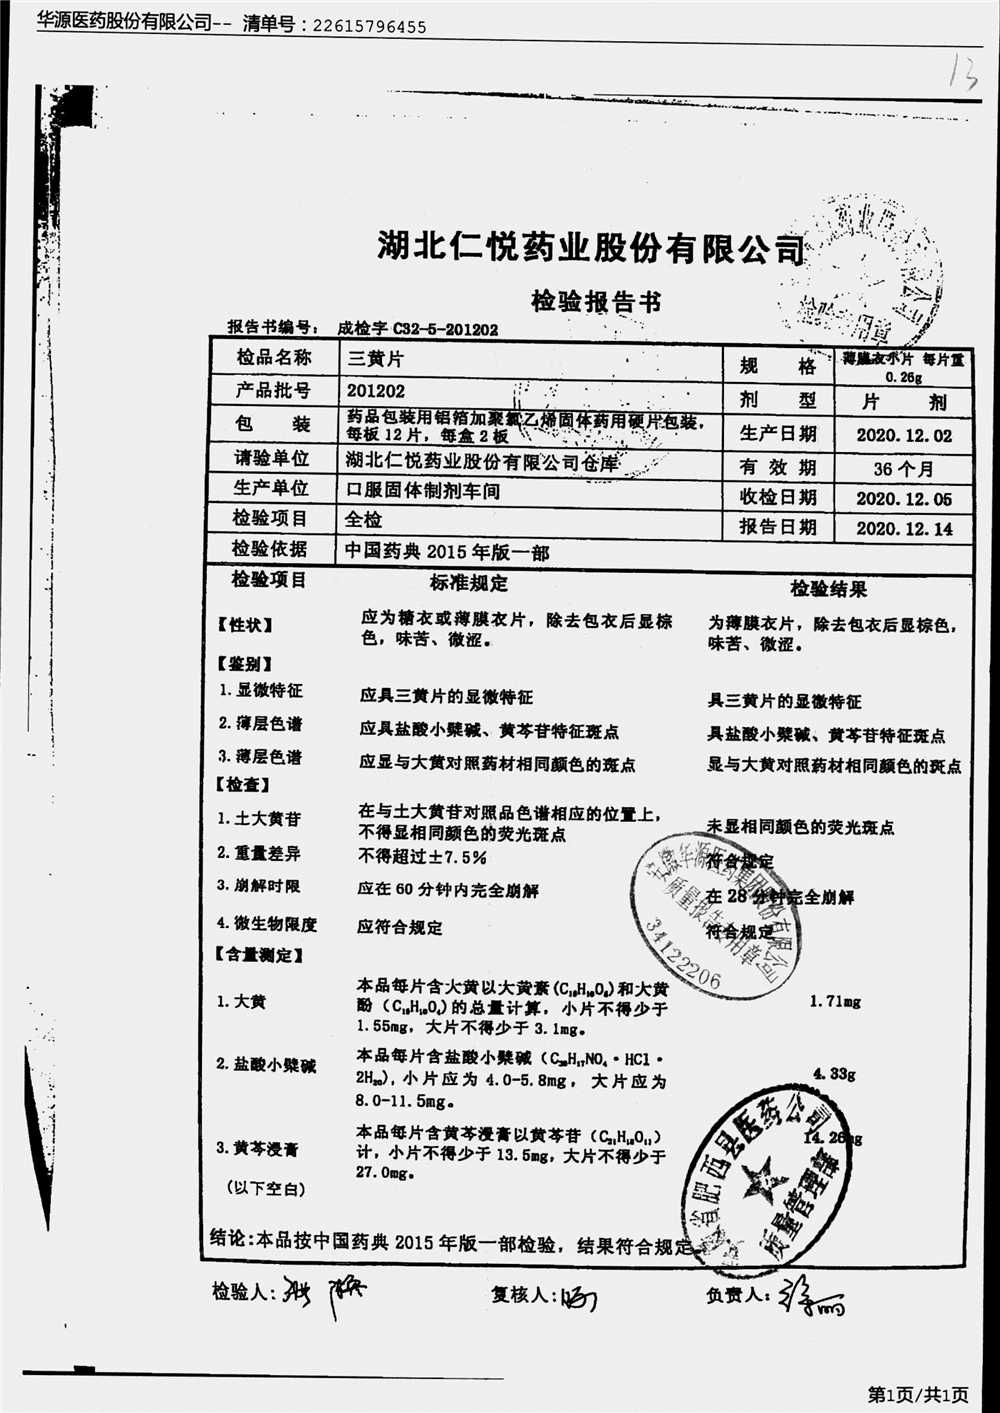 华源医药股份有限公司-- 清单号：22615796455
13
湖北仁悦药业股份有限公司
检验报告书
报告书编号： 成检字 C32-5-201202
检品名称 三黄片 规 格 薄膜衣小片 每片重 0.26g
产品批号 201202 剂 型 片 剂
包 装 药品包装用铝箔加聚氯乙烯固体药用硬片包装，
每板 12 片，每盒 2 板 生产日期 2020.12.02
请验单位 湖北仁悦药业股份有限公司仓库 有 效 期 36 个月
生产单位 口服固体制剂车间 收检日期 2020.12.05
检验项目 全检 报告日期 2020.12.14
检验依据 中国药典 2015 年版一部
检验项目 标准规定 检验结果
【性状】 应为糖衣或薄膜衣片，除去包衣后显棕 为薄膜衣片，除去包衣后显棕色，
色，味苦、微涩。 味苦、微涩。
【鉴别】
1.显微特征 应具三黄片的显微特征 具三黄片的显微特征
2.薄层色谱 应具盐酸小檗碱、黄芩苷特征斑点 具盐酸小檗碱、黄芩苷特征斑点
3.薄层色谱 应显与大黄对照药材相同颜色的斑点 显与大黄对照药材相同颜色的斑点
【检查】
1.土大黄苷 在与土大黄苷对照品色谱相应的位置上，
不得显相同颜色的荧光斑点 未显相同颜色的荧光斑点
2.重量差异 不得超过±7.5% 符合规定
3.崩解时限 应在 60 分钟内完全崩解 在 28 分钟完全崩解
4.微生物限度 应符合规定 符合规定
【含量测定】
1.大黄 本品每片含大黄以大黄素(C₁₅H₁₀O₅)和大黄
酚（C₁₅H₁₀O₄）的总量计算，小片不得少于 1.71mg
1.55mg，大片不得少于 3.1mg。
2.盐酸小檗碱 本品每片含盐酸小檗碱（C₂₀H₁₇NO₄·HCl·
2H₂₀），小片应为 4.0-5.8mg，大片应为 4.33g
8.0-11.5mg。
3.黄芩浸膏 本品每片含黄芩浸膏以黄芩苷（C₂₁H₁₈O₁₁） 14.26mg
计，小片不得少于 13.5mg，大片不得少于
27.0mg。
（以下空白）
结论:本品按中国药典 2015 年版一部检验，结果符合规定
检验人: 复核人: 负责人:
安徽华源医药集团股份有限公司
质量报告专用章
34122206
安徽省肥西县医药公司
质量管理章
第1页/共1页